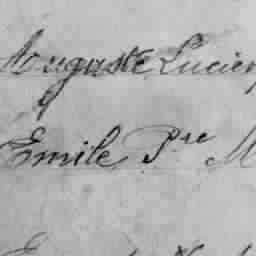 Auguste Lucien
Emile Pre M